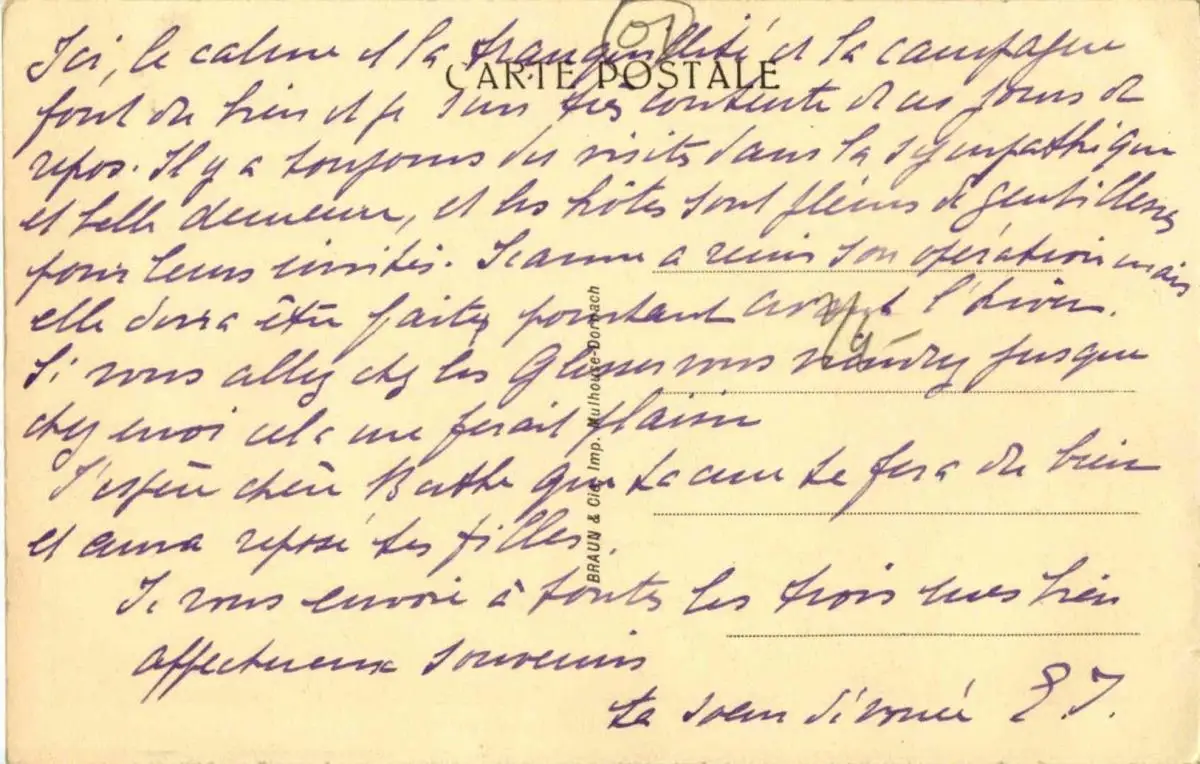 Ici, le calme et la tranquillité et la campagne
CARTE POSTALE
font du bien et je suis très contente de ces jours de
repos. Il y a toujours des visites dans la sympathique
et belle demeure, et les hôtes sont pleins de gentillesse
pour leurs invités. Jeanne a remis son opération mais
elle devra être faite pourtant avant l'hiver.
Si vous allez chez les vous viendrez jusque
chez moi cela me ferait plaisir
J'espère chère Berthe que ta cure te fera du bien
et aura reposé tes filles.
Je vous envoie à toutes les trois mes bien
affectueux souvenirs
ta soeur dévouée E. J.
BRAUN & Cie, Imp. Mulhouse-Dornach